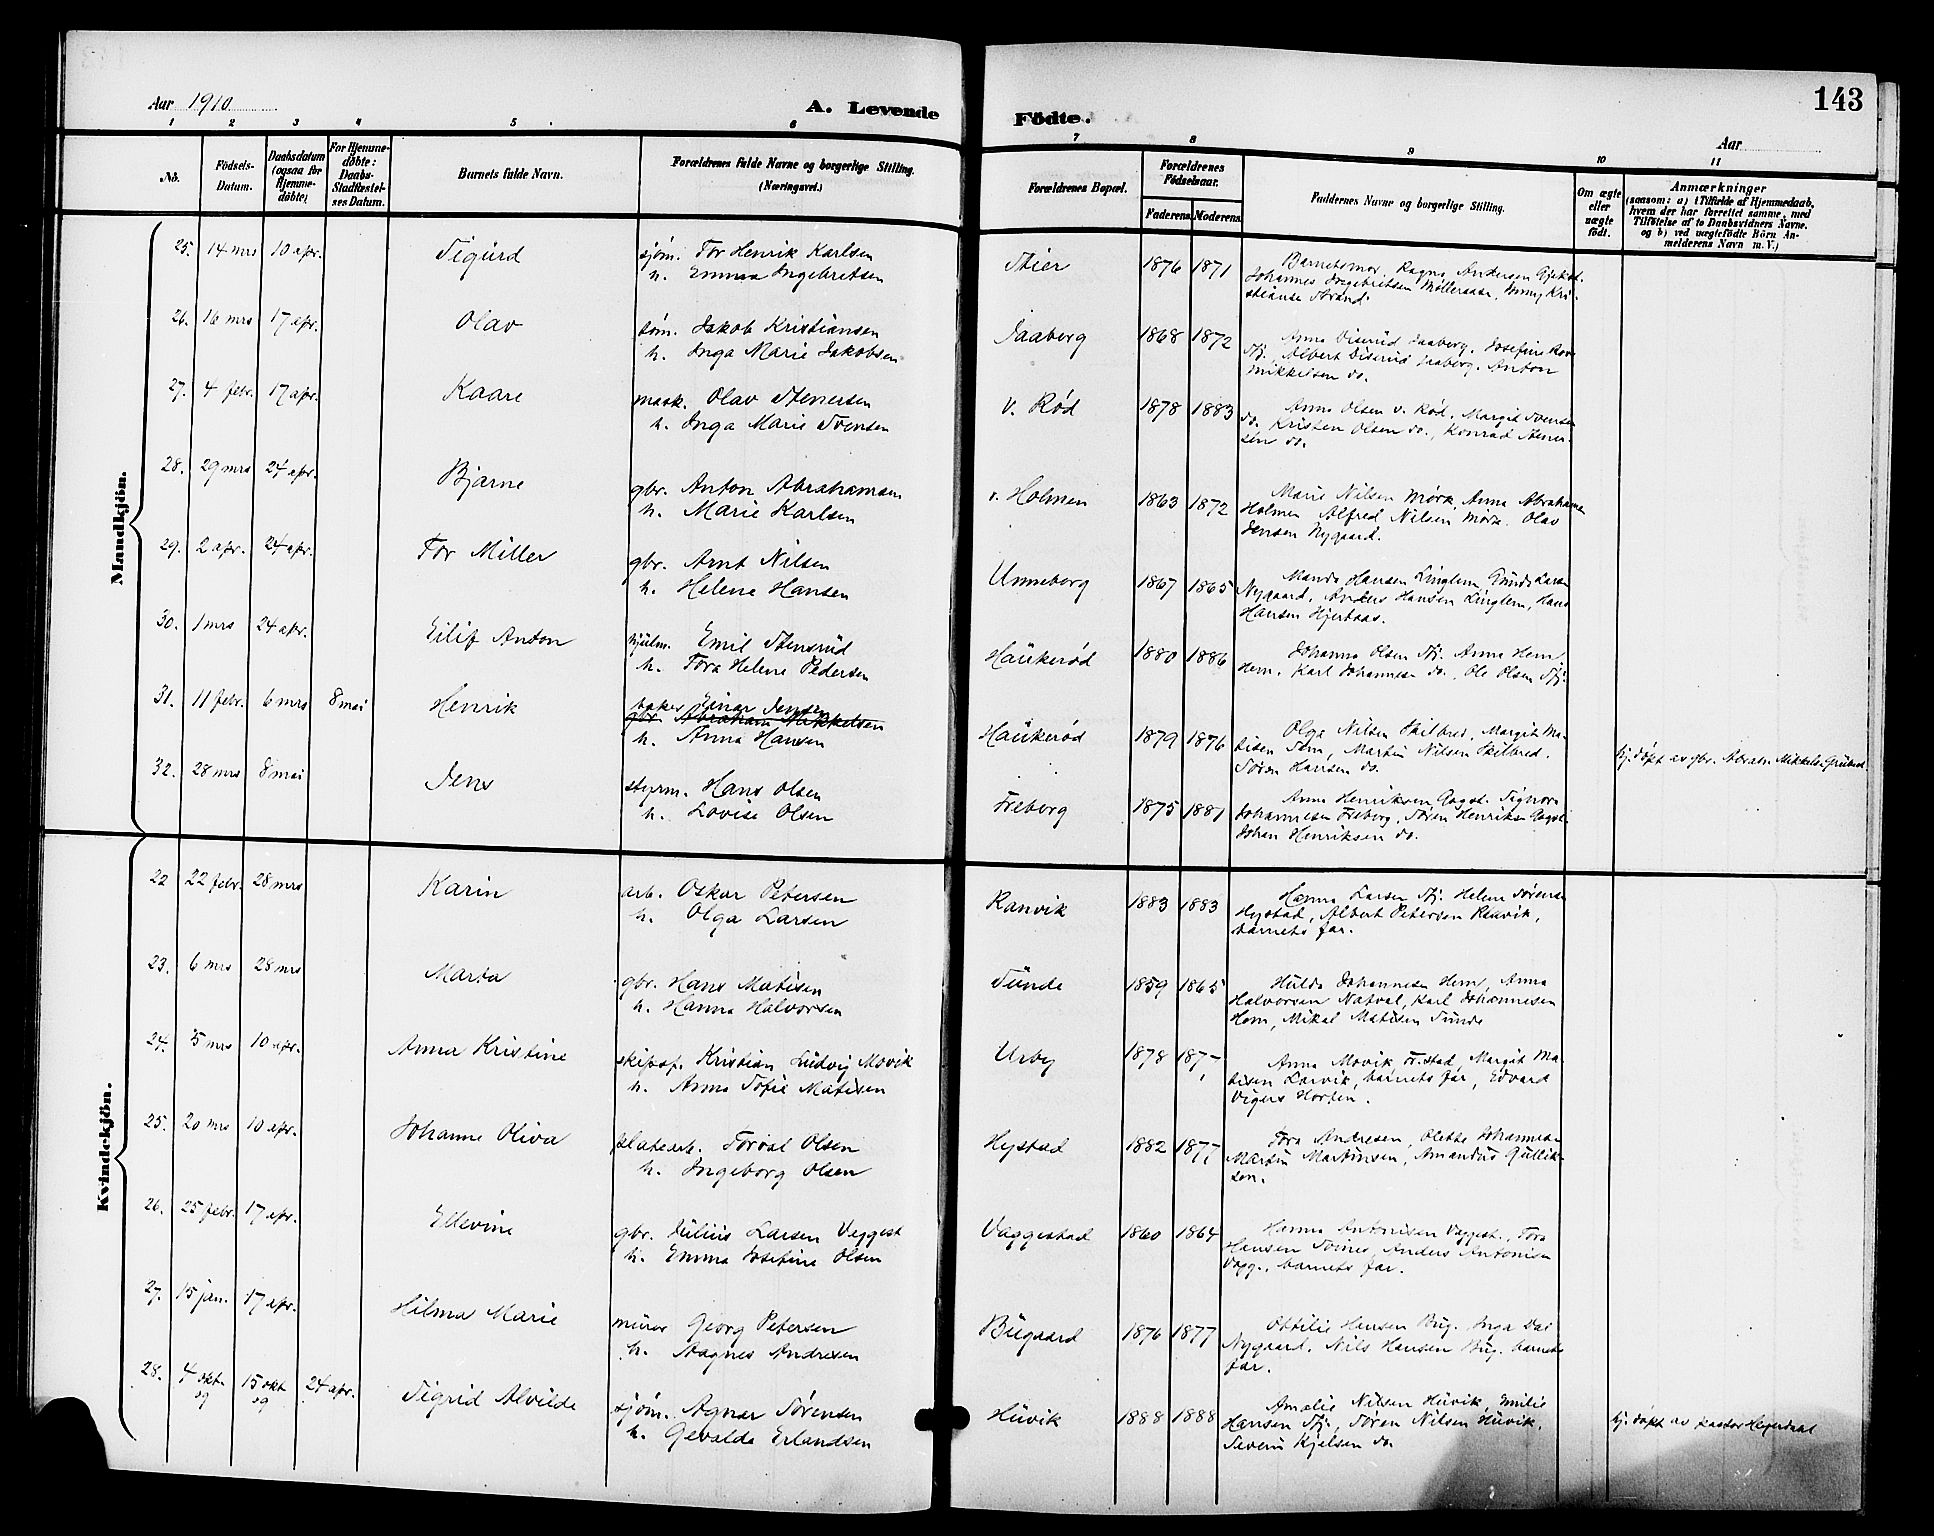 143
Aar 1910
A. Levende
Födte.
Aar
1 2 3 4 5 6 7 8 9 10 11
No.
Födsels-Datum.
Daabsdatum (ogsaa for Hjemme-döbte)
For Hjemme-döbte: Daabs-Stadfæstel-ses Datum.
Barnets fulde Navn.
Forældrenes fulde Navne og borgerlige Stilling. (Næringsvei.)
Forældrenes Bopæl.
Forældrenes Födselsaar.
Faderens. Moderens.
Faddernes Navne og borgerlige Stilling.
Om ægte eller uægte födt.
Anmærkninger
(saasom: a) i Tilfælde af Hjemmedaab,
hvem der har forrettet samme, med
Tilföielse af to Daabsvidners Navne.
og b) ved uægtefödte Börn An-
melderens Navn m. V.)
Mandkjön.
25. 14 mrs 10 apr. Sigurd sjøm. Tor Henrik Karlsen
h. Emma Ingebretsen
Stier 1876 1871 Barnetsmor, Ragna Andersen Gjekst.
Johannes Ingebretsen Mølleraasen, Kri-
stianse Strand.
26. 16 mrs 17 apr. Olav tøm. Jakob Kristiansen
h. Inga Marie Jakobsen
Jaaberg 1868 1872 Anna Diserud Jaaberg. Josefine
Stj., Albert Diserud Jaaberg. Anton
Mikkelsen do.
27. 4 febr. 17 apr. Kaare mask. Olav Stenersen
h. Inga Marie Svensen
v. Rød 1878 1883 Anna Olsen v. Rød, Margit Svensen
do. Kristen Olsen do., Konrad Stener-
sen do.
28. 29 mrs 24 apr. Bjarne gbr. Anton Abrahamsen
h. Marie Karlsen
v. Holmen 1863 1872 Marie Nilsen Mørk, Anna Abrahamsen
Holmen Alfred Nilsen Mørk. Olav
Jensen Nygaard.
29. 2 apr. 24 apr. Tor Miller gbr. Arnt Nilsen
h. Helene Hansen
Unneberg 1867 1865 Manda Hansen Linglem, Gunda Larsen
Nygaard, Anders Hansen Linglem, Hans
Hansen Hjertaas.
30. 1 mrs 24 apr. Eilif Anton hjulm. Emil Stensrud
h. Tora Helene Pedersen
Haukerød 1880 1886 Johanna Olsen Stj. Anna Hem
Hem. Karl Johannesen do., Ole Olsen Stj.
31. 11 febr. 6 mrs 8 mai Henrik baker Einar Jensen
gbr. Abraham Mikkelsen
h. Anna Hansen
Haukerød 1879 1876 Olga Nilsen Skilbred, Margit Ma-
tisen Tem, Martin Nilsen Skilbred.
Søren Hansen do.
hj. døpt av gbr. Abrah. Mikkels.
32. 28 mrs 8 mai Jens styrm. Hans Olsen
h. Lovise Olsen
Freberg 1875 1881 Anna Henriksen Gogst. Signora
Johannesen Freberg, Søren Henriksen Gogst.
Johan Henriksen do.
Kvindekjön.
22 22 febr. 28 mrs Karin arb. Oskar Petersen
h. Olga Larsen
Ranvik 1883 1883 Hanna Larsen Stj. Helene Sørensen
Hystad, Albert Petersen Ranvik,
barnets far.
23. 6 mrs 28 mrs Marta gbr. Hans Matisen
h. Hanna Halvorsen
Sunde 1859 1865 Hulda Johannesen Hem, Anna
Halvorsen Natval, Karl Johannesen
Hem, Mikal Matisen Sunde
24. 5 mrs 10 apr. Anna Kristine skipsf. Kristian Ludvig Movik
h. Anna Sofie Matisen
Urby 1878 187 Anna Movik, Margit Ma-
tisen Larvik, barnets far, Edvard
Vigers Horten.
25. 20 mrs 10 apr. Johanne Oliva platearb. Torval Olsen
h. Ingeborg Olsen
Hystad 1882 1877 Tora Andresen, Olette Johannesen
Martin Martinsen, Amandus Gullik-
sen.
26. 25 febr. 17 apr. Ellevine gbr. Julius Larsen Veggest
h. Emma Josefine Olsen
Vaggestad 1860 1864 Hanna Antonisen Vaggest., Tora
Hansen, Anders Antonisen
Vagg., barnets far.
27. 15 jan. 17 apr. Hilma Marie murer Georg Petersen
h. Aagnes Andresen
Bugaard 1876 1877 Ottilie Hansen Bug. Inga Dal
Nygaard. Nils Hansen Bug. barnets
far.
28. 4 okt. 09 15 okt 09 24 apr. Sigrid Alvilde sjøm. Agnar Sørensen
h. Gevalda Erlandsen
Huvik 1888 1888 Amalie Nilsen Huvik, Emilie
Hansen Stj., Søren Nilsen Huvik,
Severin Kjelsen do.
hj. døpt av pastor Heyerdahl